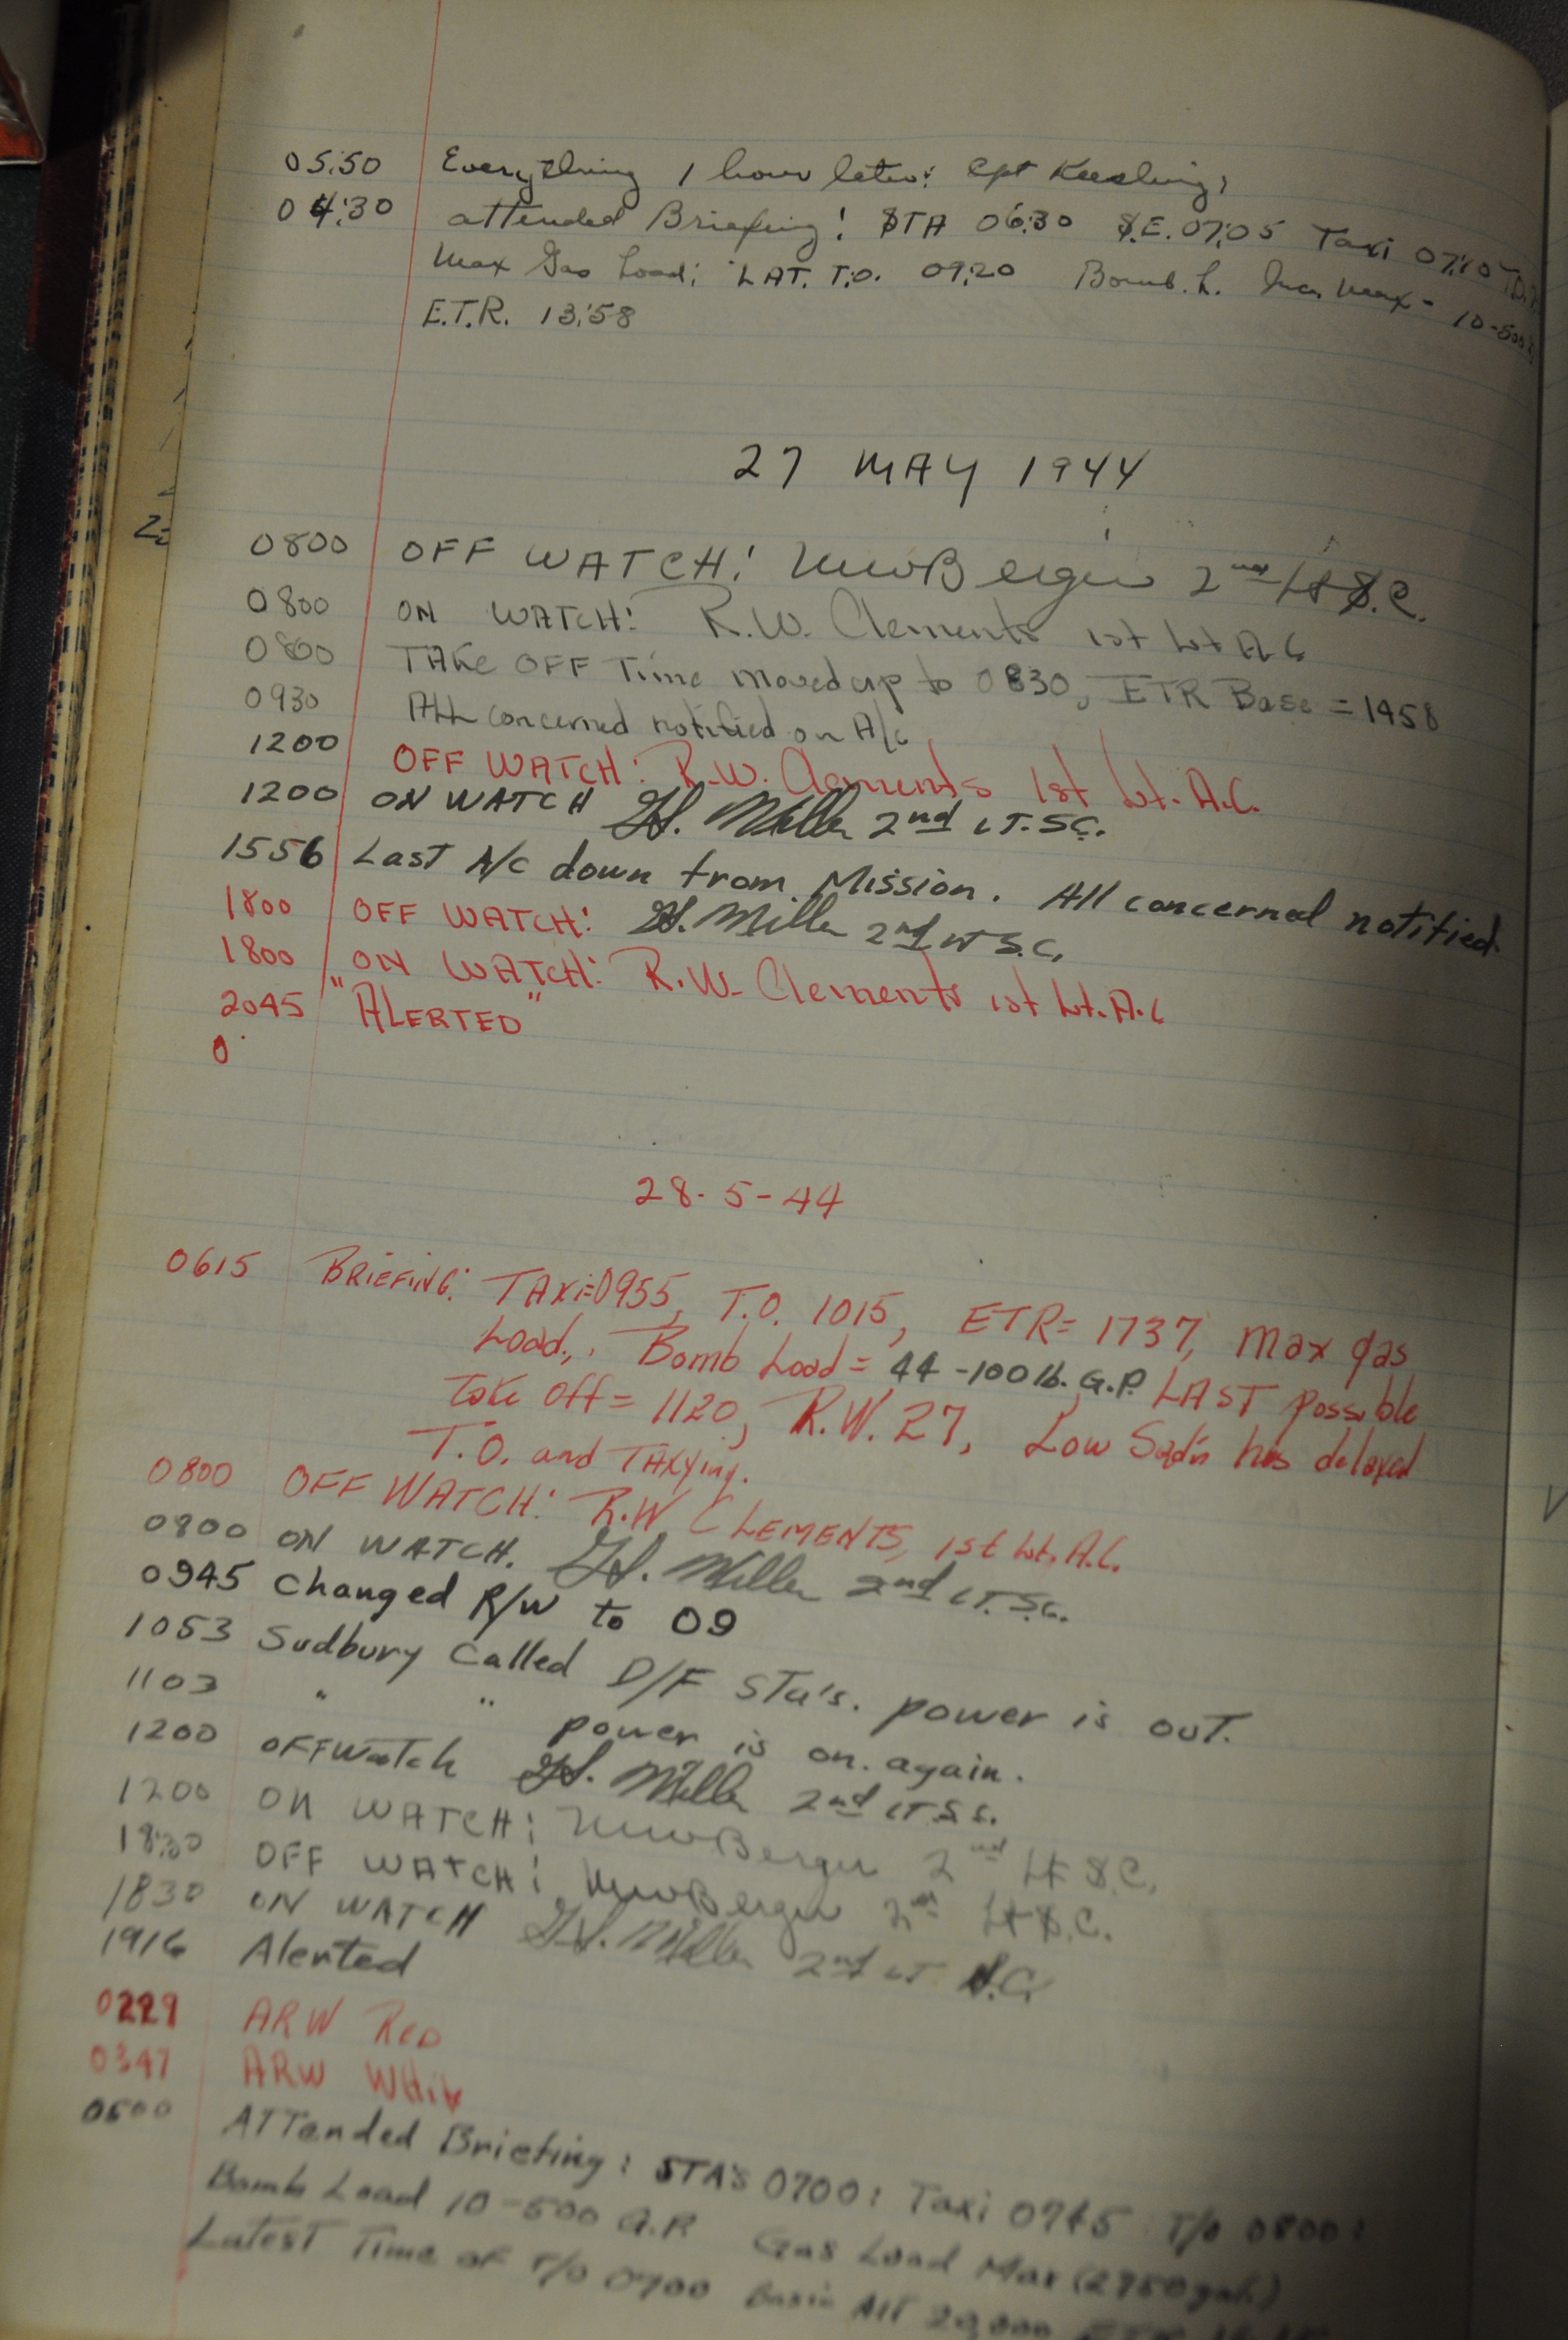 05:50 Everything 1 hour later: Cpt Keesling;
04:30 attended Briefing! STA 06:30 S.E. 07:05 Taxi 07:10 T.O.
Max Gas Load; LAT. T.O. 09:20 Bomb. L. Max - 10-500
E.T.R. 13:58
27 MAY 1944
0800 OFF WATCH! Berger 2nd Lt S.C.
0800 ON WATCH: R.W. Clements 1st Lt A.C
0800 TAke OFF Time moved up to 0830, ETR Base = 1458
0930 All concerned notified on A/c
1200 OFF WATCH: R.W. Clements 1st Lt. A.C.
1200 ON WATCH H. Miller 2nd LT. SC.
1556 Last A/c down from Mission. All concerned notified.
1800 OFF WATCH: H. Miller 2nd LT S.C.
1800 ON WATCH: R.W. Clements 1st Lt. A.C
2045 "ALERTED"
0
28-5-44
0615 BRIEFING: TAXi=0955, T.O. 1015, ETR= 1737, Max gas
Load,. Bomb Load = 44-100 lb. G.P. LAST possible
take off = 1120, R.W. 27, Low Sqd'n has delayed
T.O. and TAXying.
0800 OFF WATCH: R.W CLEMENTS, 1st Lt. A.C.
0800 ON WATCH. H. Miller 2nd LT. S.C.
0945 Changed R/W to 09
1053 Sudbury Called D/F STa's. power is out.
1103 " " power is on again.
1200 OFF Watch H. Miller 2nd LT S.C.
1200 ON WATCH: Berger 2nd Lt S.C.
18:30 OFF WATCH! Berger 2nd Lt S.C.
1830 ON WATCH H. Miller 2nd LT S.C.
1916 Alerted
0229 ARW RED
0347 ARW White
0500 ATTended Briefing: STA's 0700: Taxi 0745 T/o 0800:
Bomb Load 10-500 G.P. Gas Load Max (2750 gals)
Latest Time of T/o 0900 Basic Alt 20,000